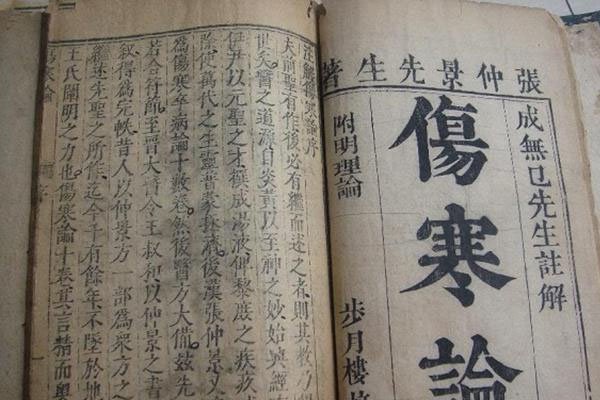 張仲景先生著
成無己先生註解
傷寒論
附明理論
步月樓
註解傷寒論序
夫前聖有作後必有繼而述之者則其教乃
世矣醫之道源自炎黃以至神之妙始興經
伊尹以元聖之才撰成湯液俾黎庶之疾疢
除使萬代之生靈普蒙拯濟後漢張仲景
為傷寒卒病論十數卷然後醫方大備茲先
若合符節至晉太醫令王叔和以仲景之書
敘得為完帙昔人以仲景方一部為眾方之
繼述先聖之所作迄今千有餘年不墜於地
王氏闡明之力也傷寒論十卷其言精而奧
傷寒論 序